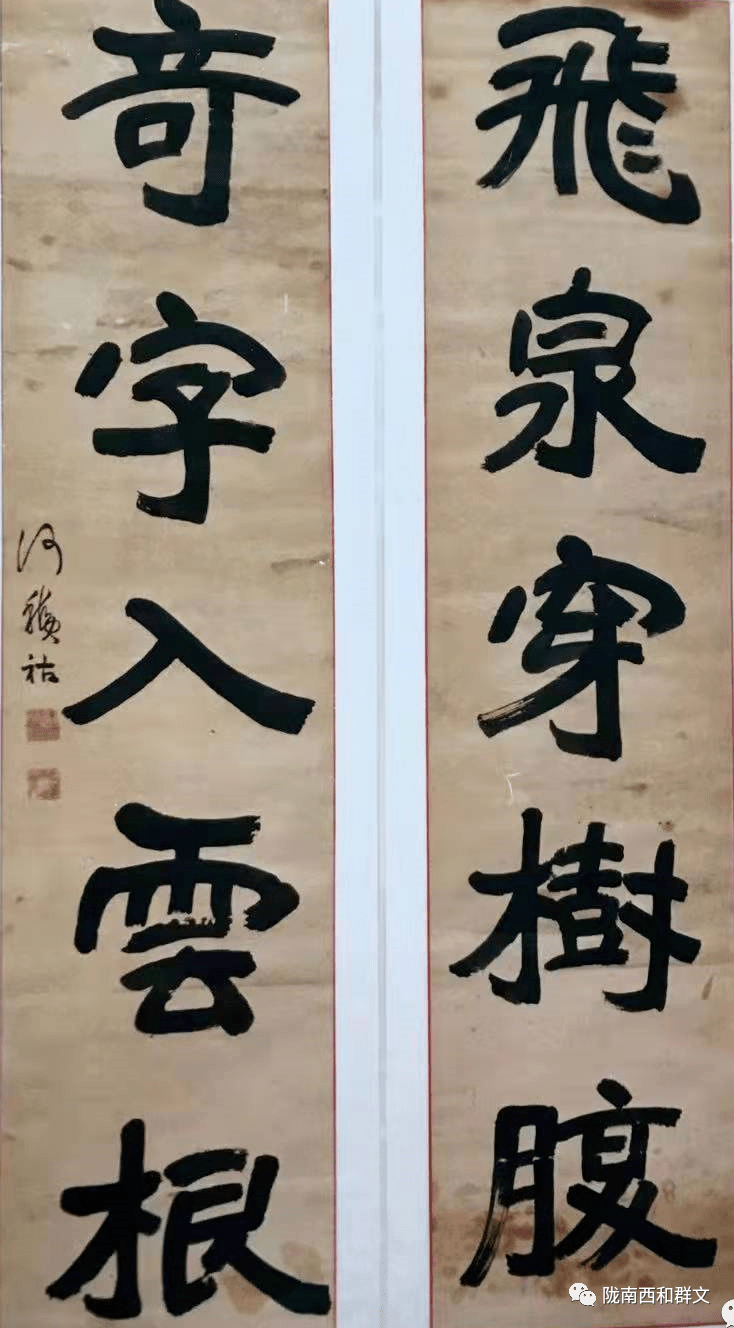 飛泉穿樹腹
奇字入雲根
何
祜
陇南西和群文